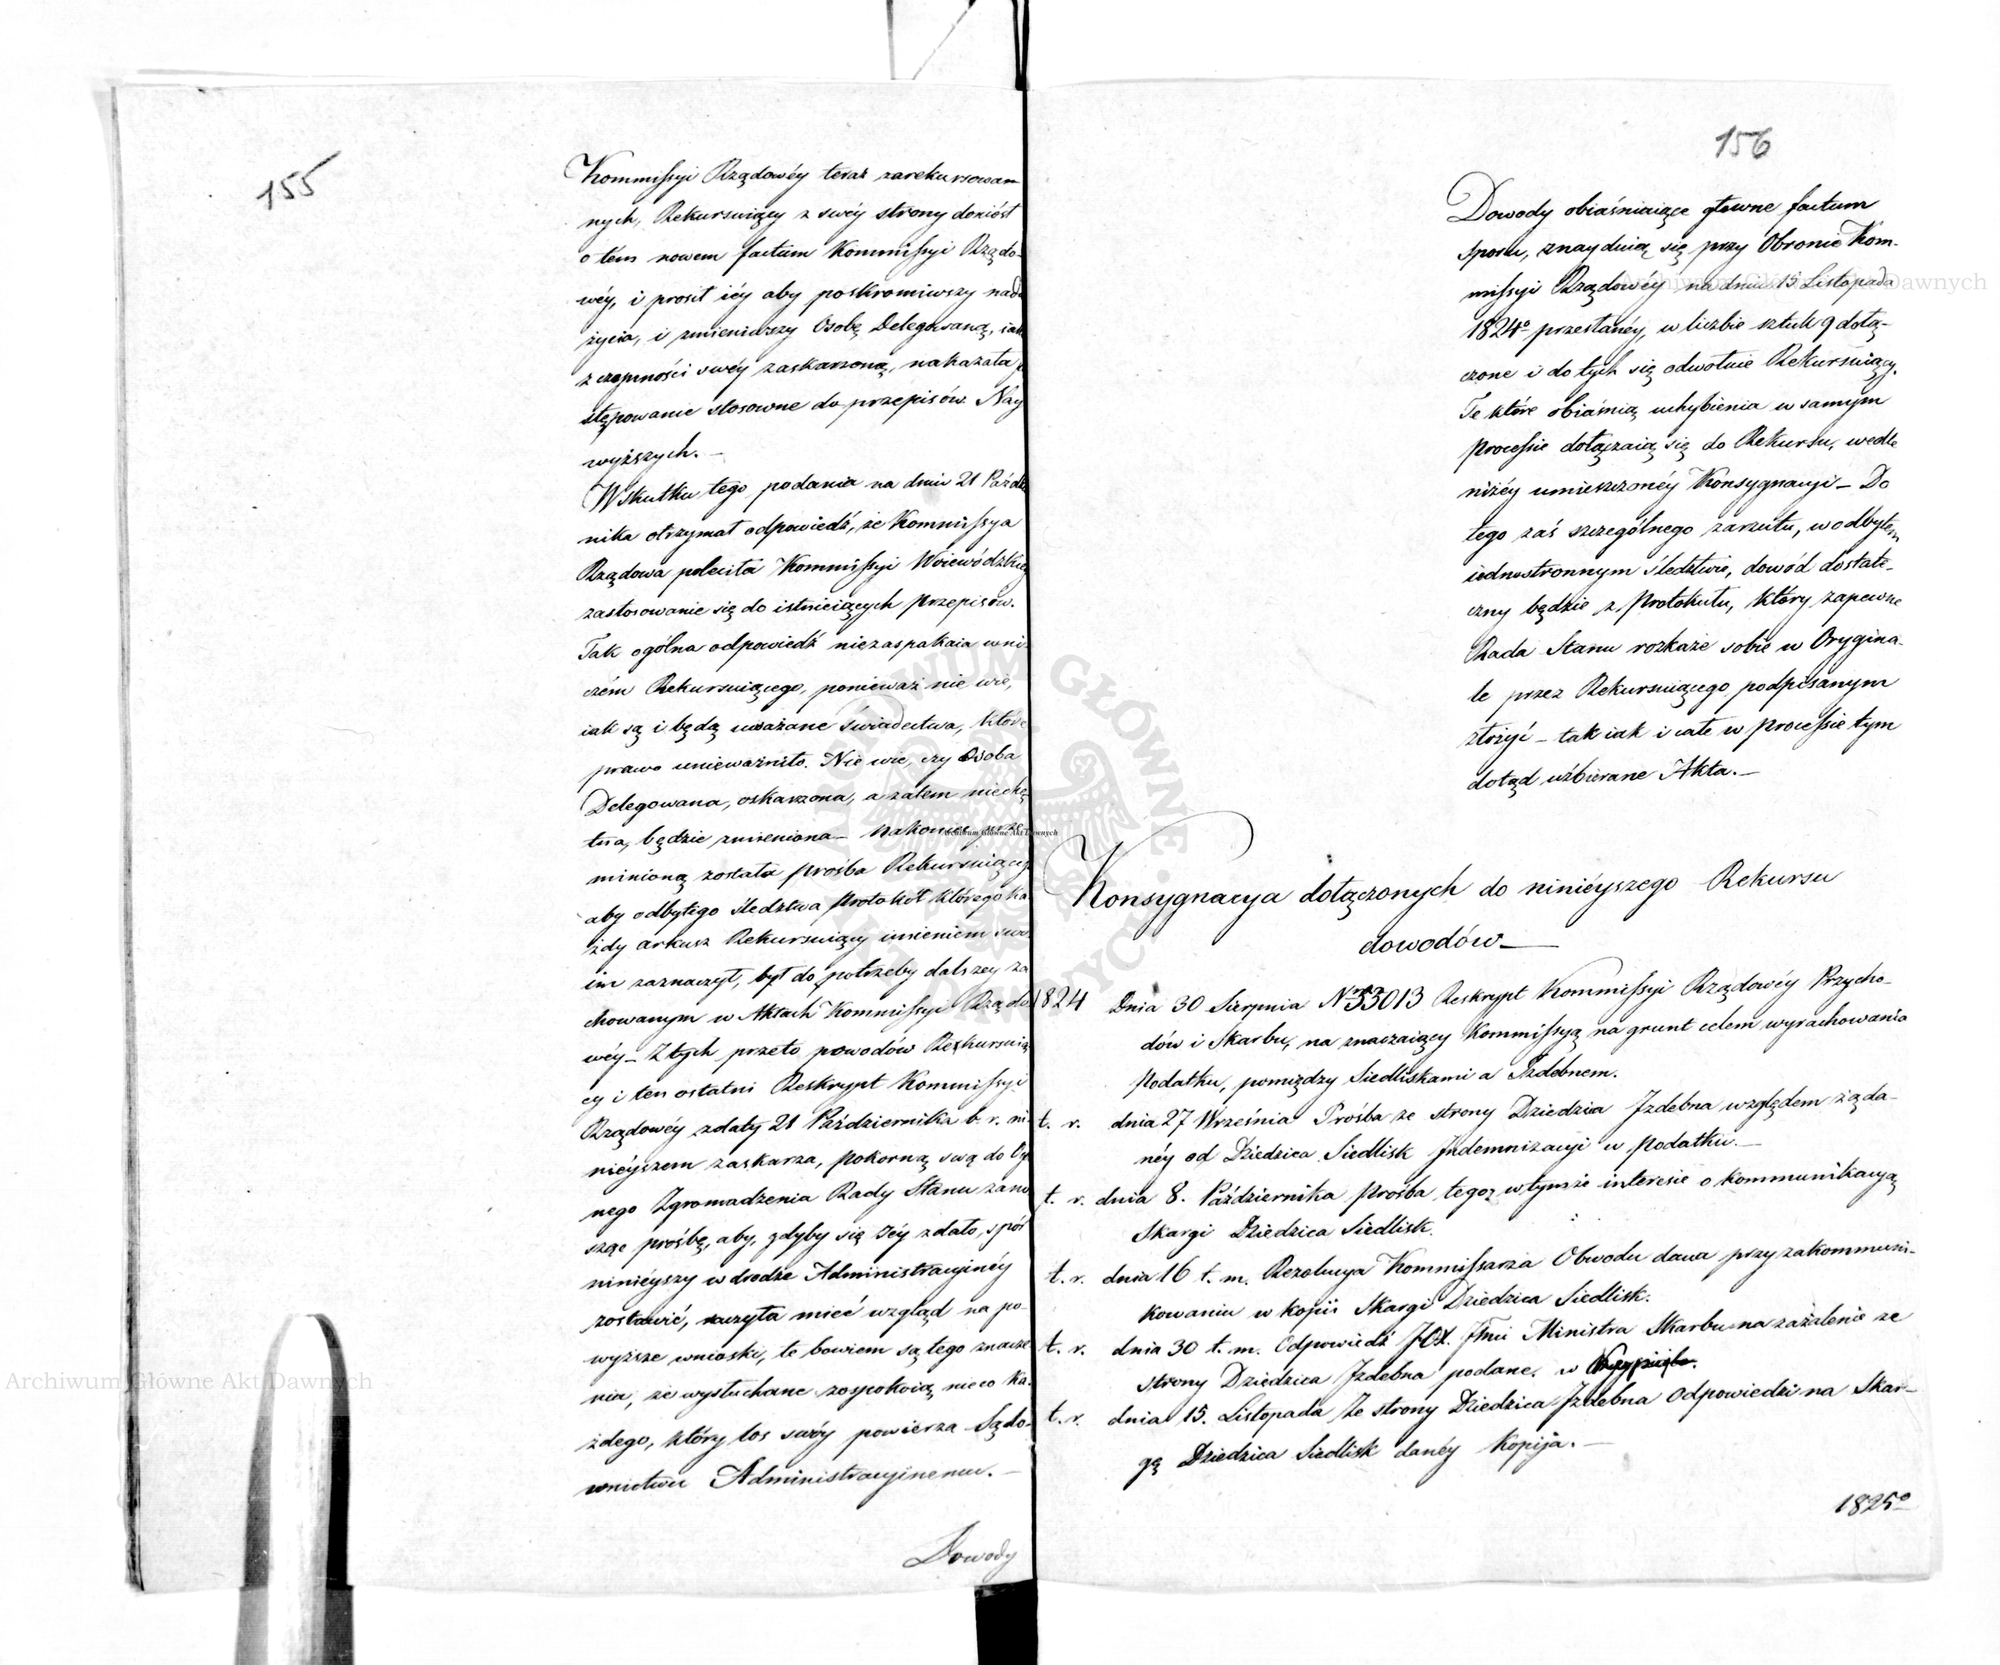 155
Kommissyi Rządowéy teraz zarekursowan
nych, Rekursuiący z swéy strony doniósł
o tém nowem factum Kommissyi Rządo-
wéy, i prosił iéy aby poskromiwszy nadu
życia, i zmieniwszy Osobę Delegowaną, iak
z czynności swéy zaskarzoną, nakazała p
stępowanie stosowne do przepisów Nay
wyższych. —
W skutku tego podania na dniu 21 Paźdz
nika otrzymał odpowiedź, że Kommissya
Rządowa poleciła Kommissyi Woiewódzkiey
zastosowanie się do istnieiących przepisów.
Tak ogólna odpowiedź niezaspakaia w ni-
czém Rekursuiącego, ponieważ nie wie,
iak są i będą uważane świadectwa, które
prawo unieważniło. Nie wie, czy Osoba
Delegowana, oskarzona, a zatem niechę
tna, będzie zmieniona — nakoniec prze
minioną została prośba Rekursuiącego
aby odbytego śledztwa protokół którego ka
żdy arkusz Rekursuiący imieniem swo
im zaznaczył, był do potrzeby dalszey za
chowanym w Aktach Kommissyi Rządo
wéy — Z tych przeto powodów Rekursuią
cy i ten ostatni Reskrypt Kommissyi
Rządowéy z daty 21 Października b. r. ni
nieyszem zaskarza, pokorną swą do Ogó
nego Zgromadzenia Rady Stanu zano
sząc prośbę, aby, gdyby się Jéy zdało, spór
niniéyszy w drodze Administracyinéy
zostawić, raczyła mieć wzgląd na po-
wyższe wnioski, te bowiem są tego znacze
nia, że wysłuchane zaspokoią nieco ka-
żdego, który los swóy powierza Sądo-
wnictwu Administracyinemu. —
Dowody
156
Dowody obiaśniaiące główne factum
sporu, znayduią się przy Obronie Kom-
missyi Rządowéy na dniu 15 Listopada
1824º przesłanéy, w liczbie sztuk 9 dołą-
czone i do tych się odwołuie Rekursuiący.
Te które obiaśnią uchybienia w samym
processie dołączaią się do Rekursu, wedle
niżéy umieszczonéy Konsygnacyi — Do
tego zaś szczególnego zarzutu, w odbytem
iednostronnym śledztwie, dowód dostate-
czny będzie z Protokułu, który zapewne
Rada Stanu rozkaże sobie w Orygina-
le przez Rekursuiącego podpisanym
złożyć — tak iak i całe w processie tym
dotąd uzbierane Akta. —
Konsygnacya dołączonych do niniéyszego Rekursu
dowodów —
1824 Dnia 30 Sierpnia Nro 33013 Reskrypt Kommissyi Rządowéy Przycho-
dów i Skarbu, na znaczaiący Kommissyą na grunt celem wyrachowania
Podatku, pomiędzy Siedliskami a Izdebnem.
t. r. dnia 27 Września Prośba ze strony Dziedzica Izdebna względem żąda-
néy od Dziedzica Siedlisk Indemnizacyi w podatku. —
t. r. dnia 8. Października prośba tegoż w tymże interesie o kommunikacyą
Skargi Dziedzica Siedlisk.
t. r. dnia 16 t. m. Rezolucya Kommissarza Obwodu dana przy zakommuni-
kowaniu w kopii Skargi Dziedzica Siedlisk.
t. r. dnia 30 t. m. Odpowiedź JOX. Jmci Ministra Skarbu na zażalenie ze
strony Dziedzica Izdebna podane. w
t. r. dnia 15. Listopada Ze strony Dziedzica Izdebna Odpowiedzi na Skar-
gę Dziedzica Siedlisk danéy kopija. —
1825º
Archiwum Główne Akt Dawnych
Archiwum Główne Akt Dawnych
Archiwum Główne Akt Dawnych
ARCHIWUM GŁÓWNE AKT DAWNYCH